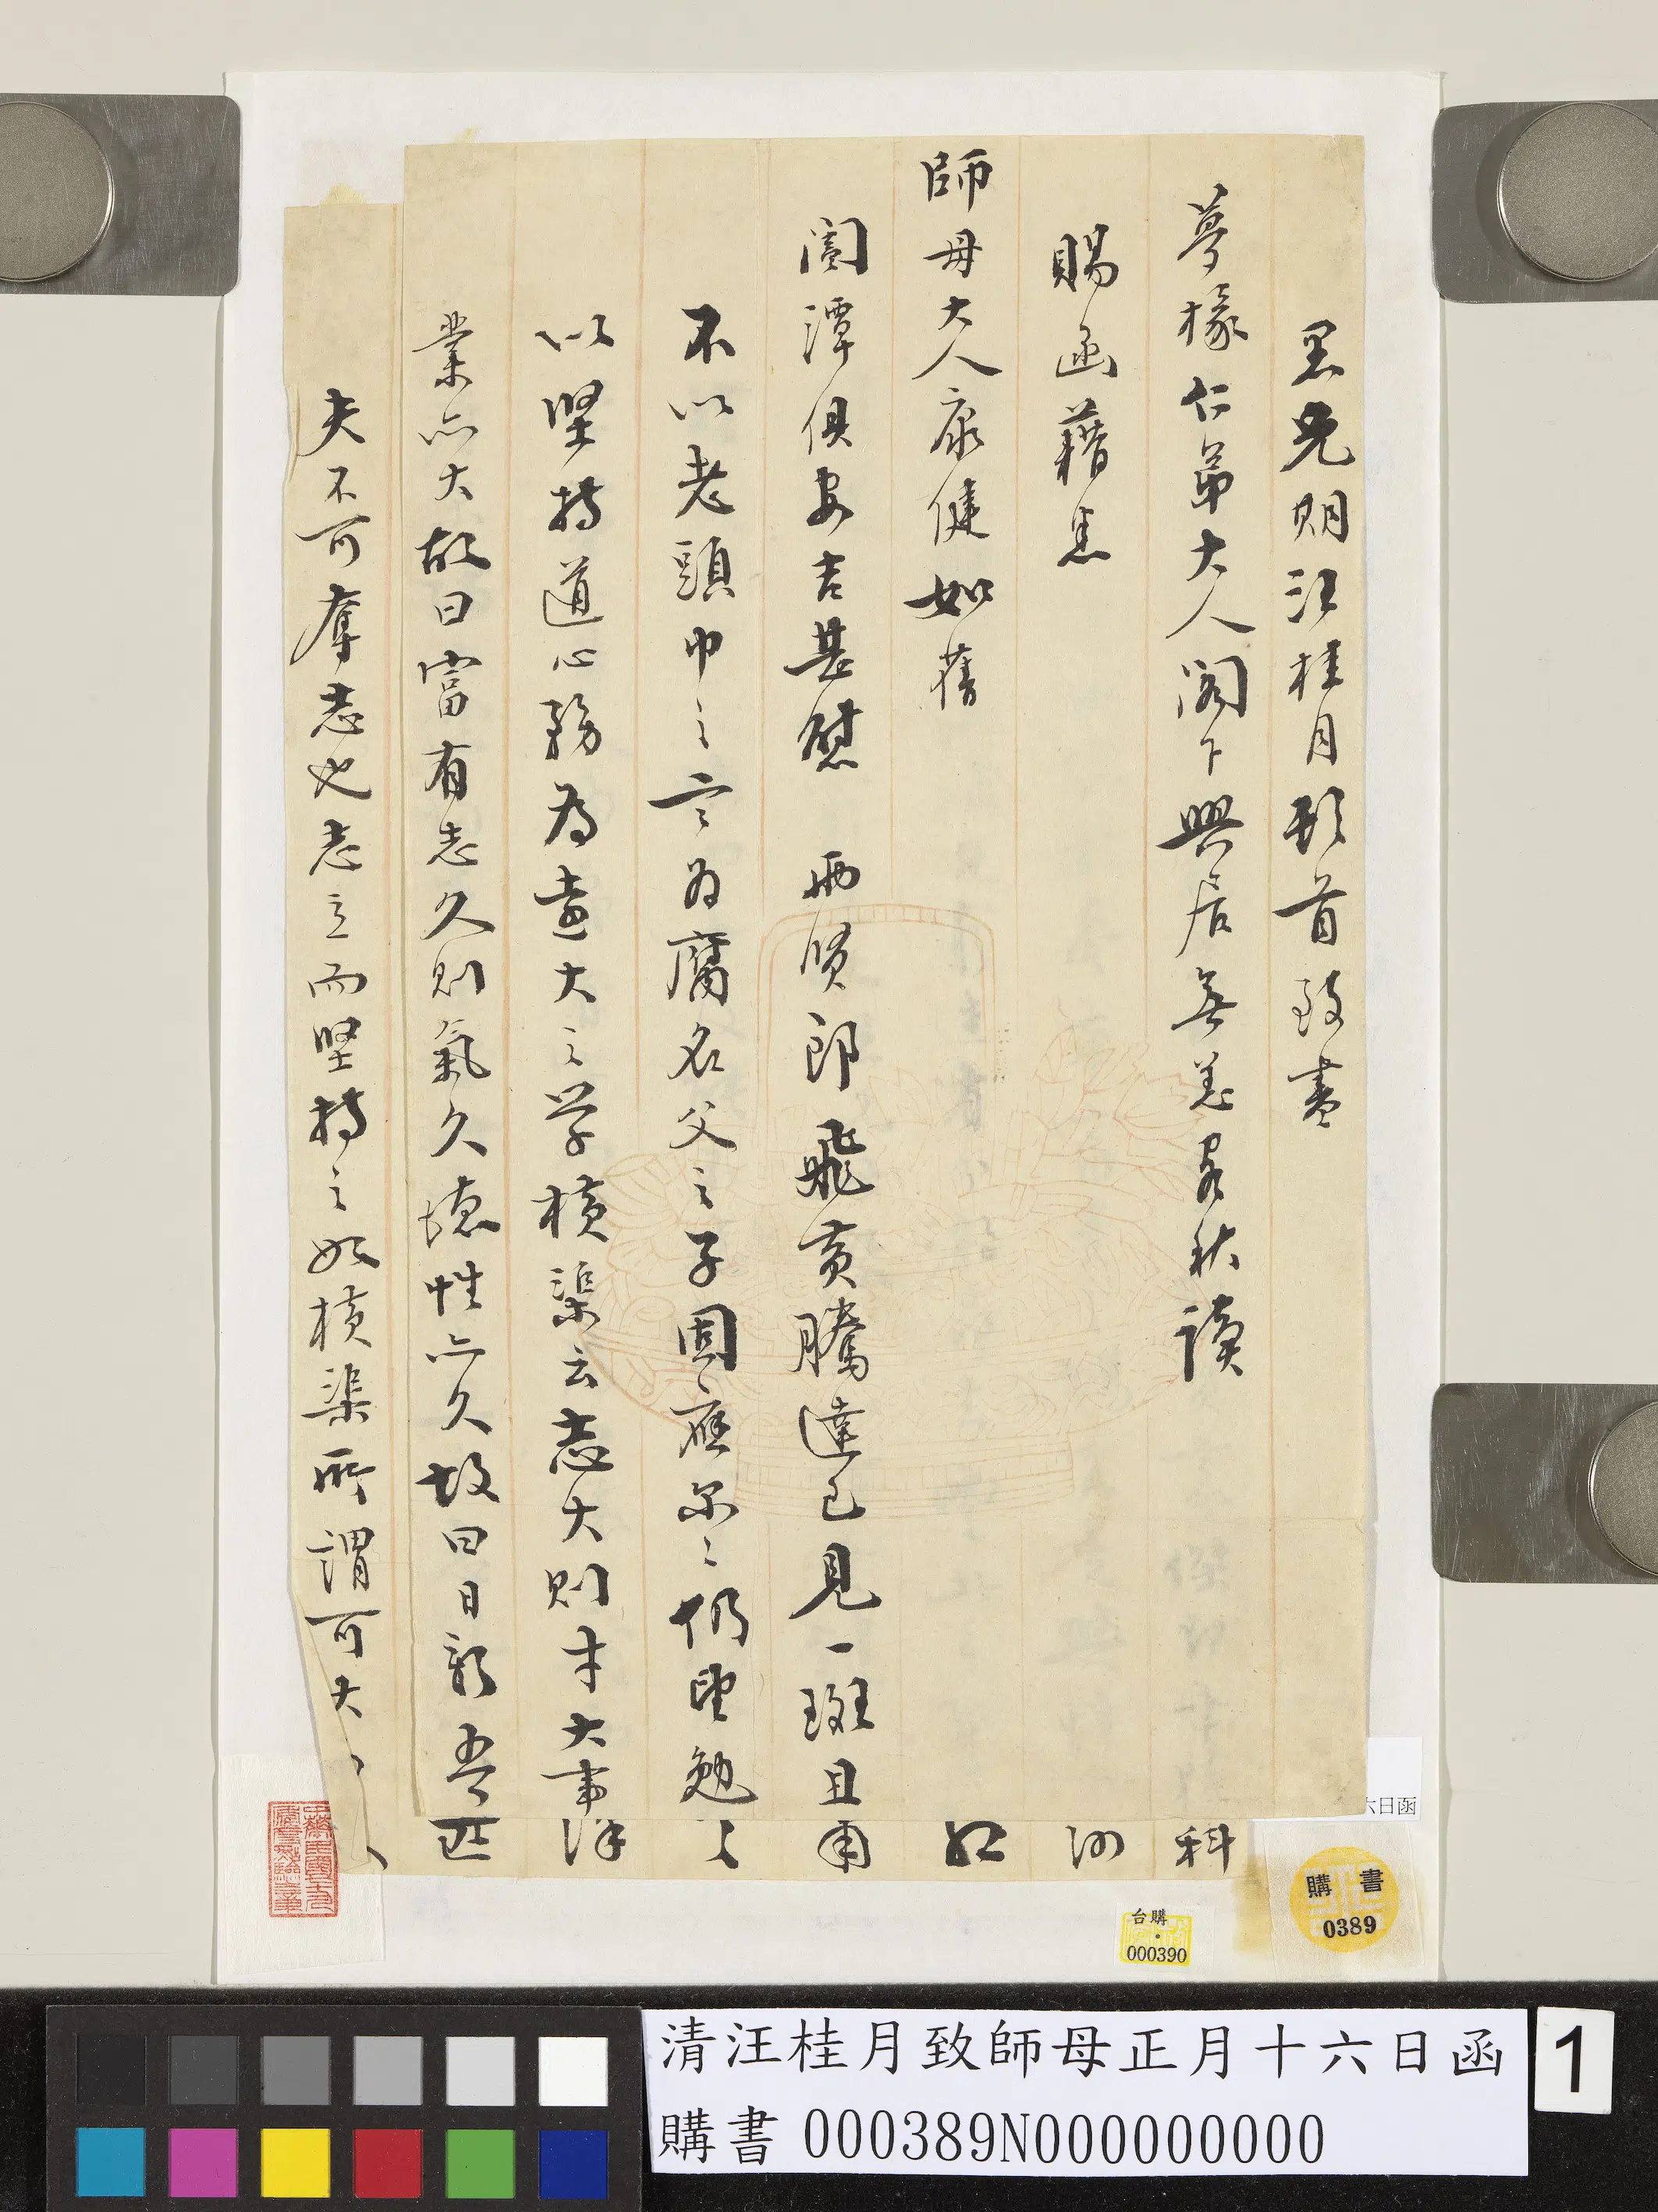 愚兄期汪桂月頓首致書
夢椽仁弟大人閣下興居無恙客秋讀
賜函藉悉
師母大人康健如舊
閫潭俱安吉甚慰 兩賢郎飛黃騰達已見一斑且
不以老頭巾之言為腐名父之子固應尔尔仍望勉
以堅持道心務為遠大之学橫渠云志大則才大事
業亦大故曰富有志久則氣久德性亦久故曰日新吾
夫不可奪志也志立而堅持之如橫渠所謂可大
科
紅
六日函
購書
0389
台購
000390
清汪桂月致師母正月十六日函
購書 000389N000000000
1